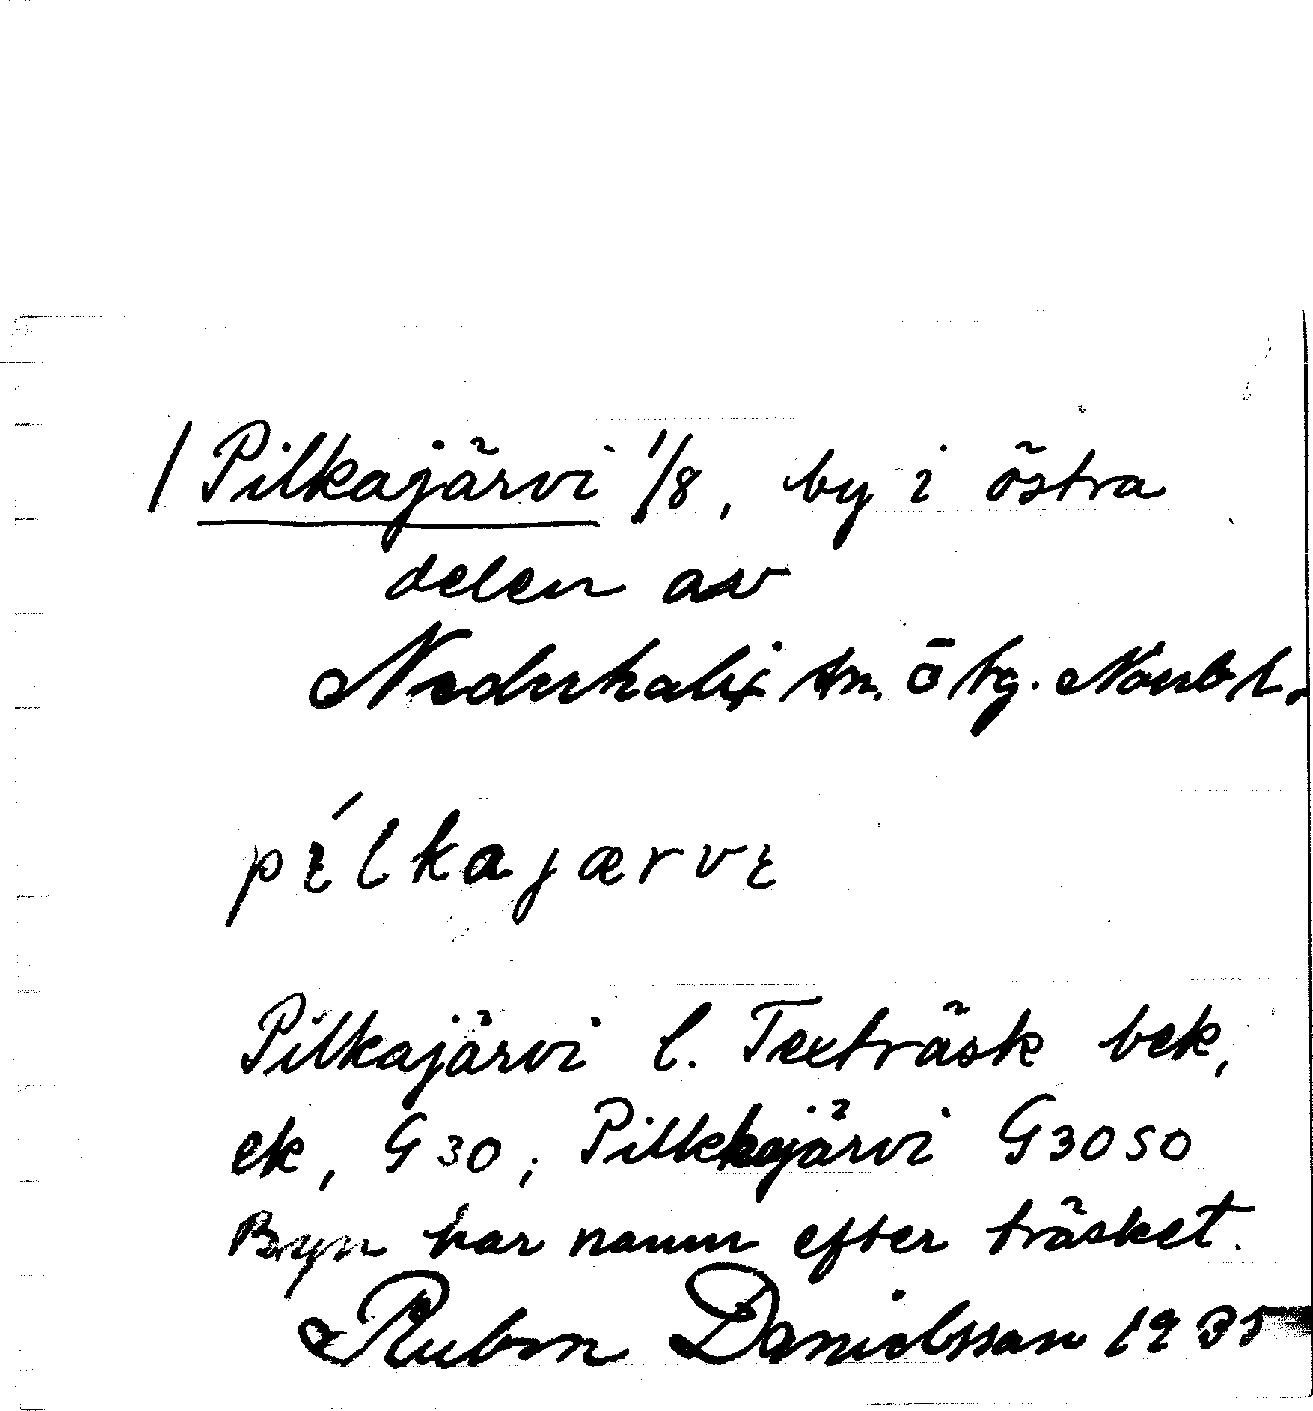 / Pilkajärvi 1/8, by i östra
delen av
Nederkalix sn. ö tg. Norrb l.
pɩ́lkajærvɩ
Pilkajärvi l. Texträsk bek,
ek, G30; Pilkkajärvi G3050
Byn har namn efter träsket.
Ruben Danielsson 1935